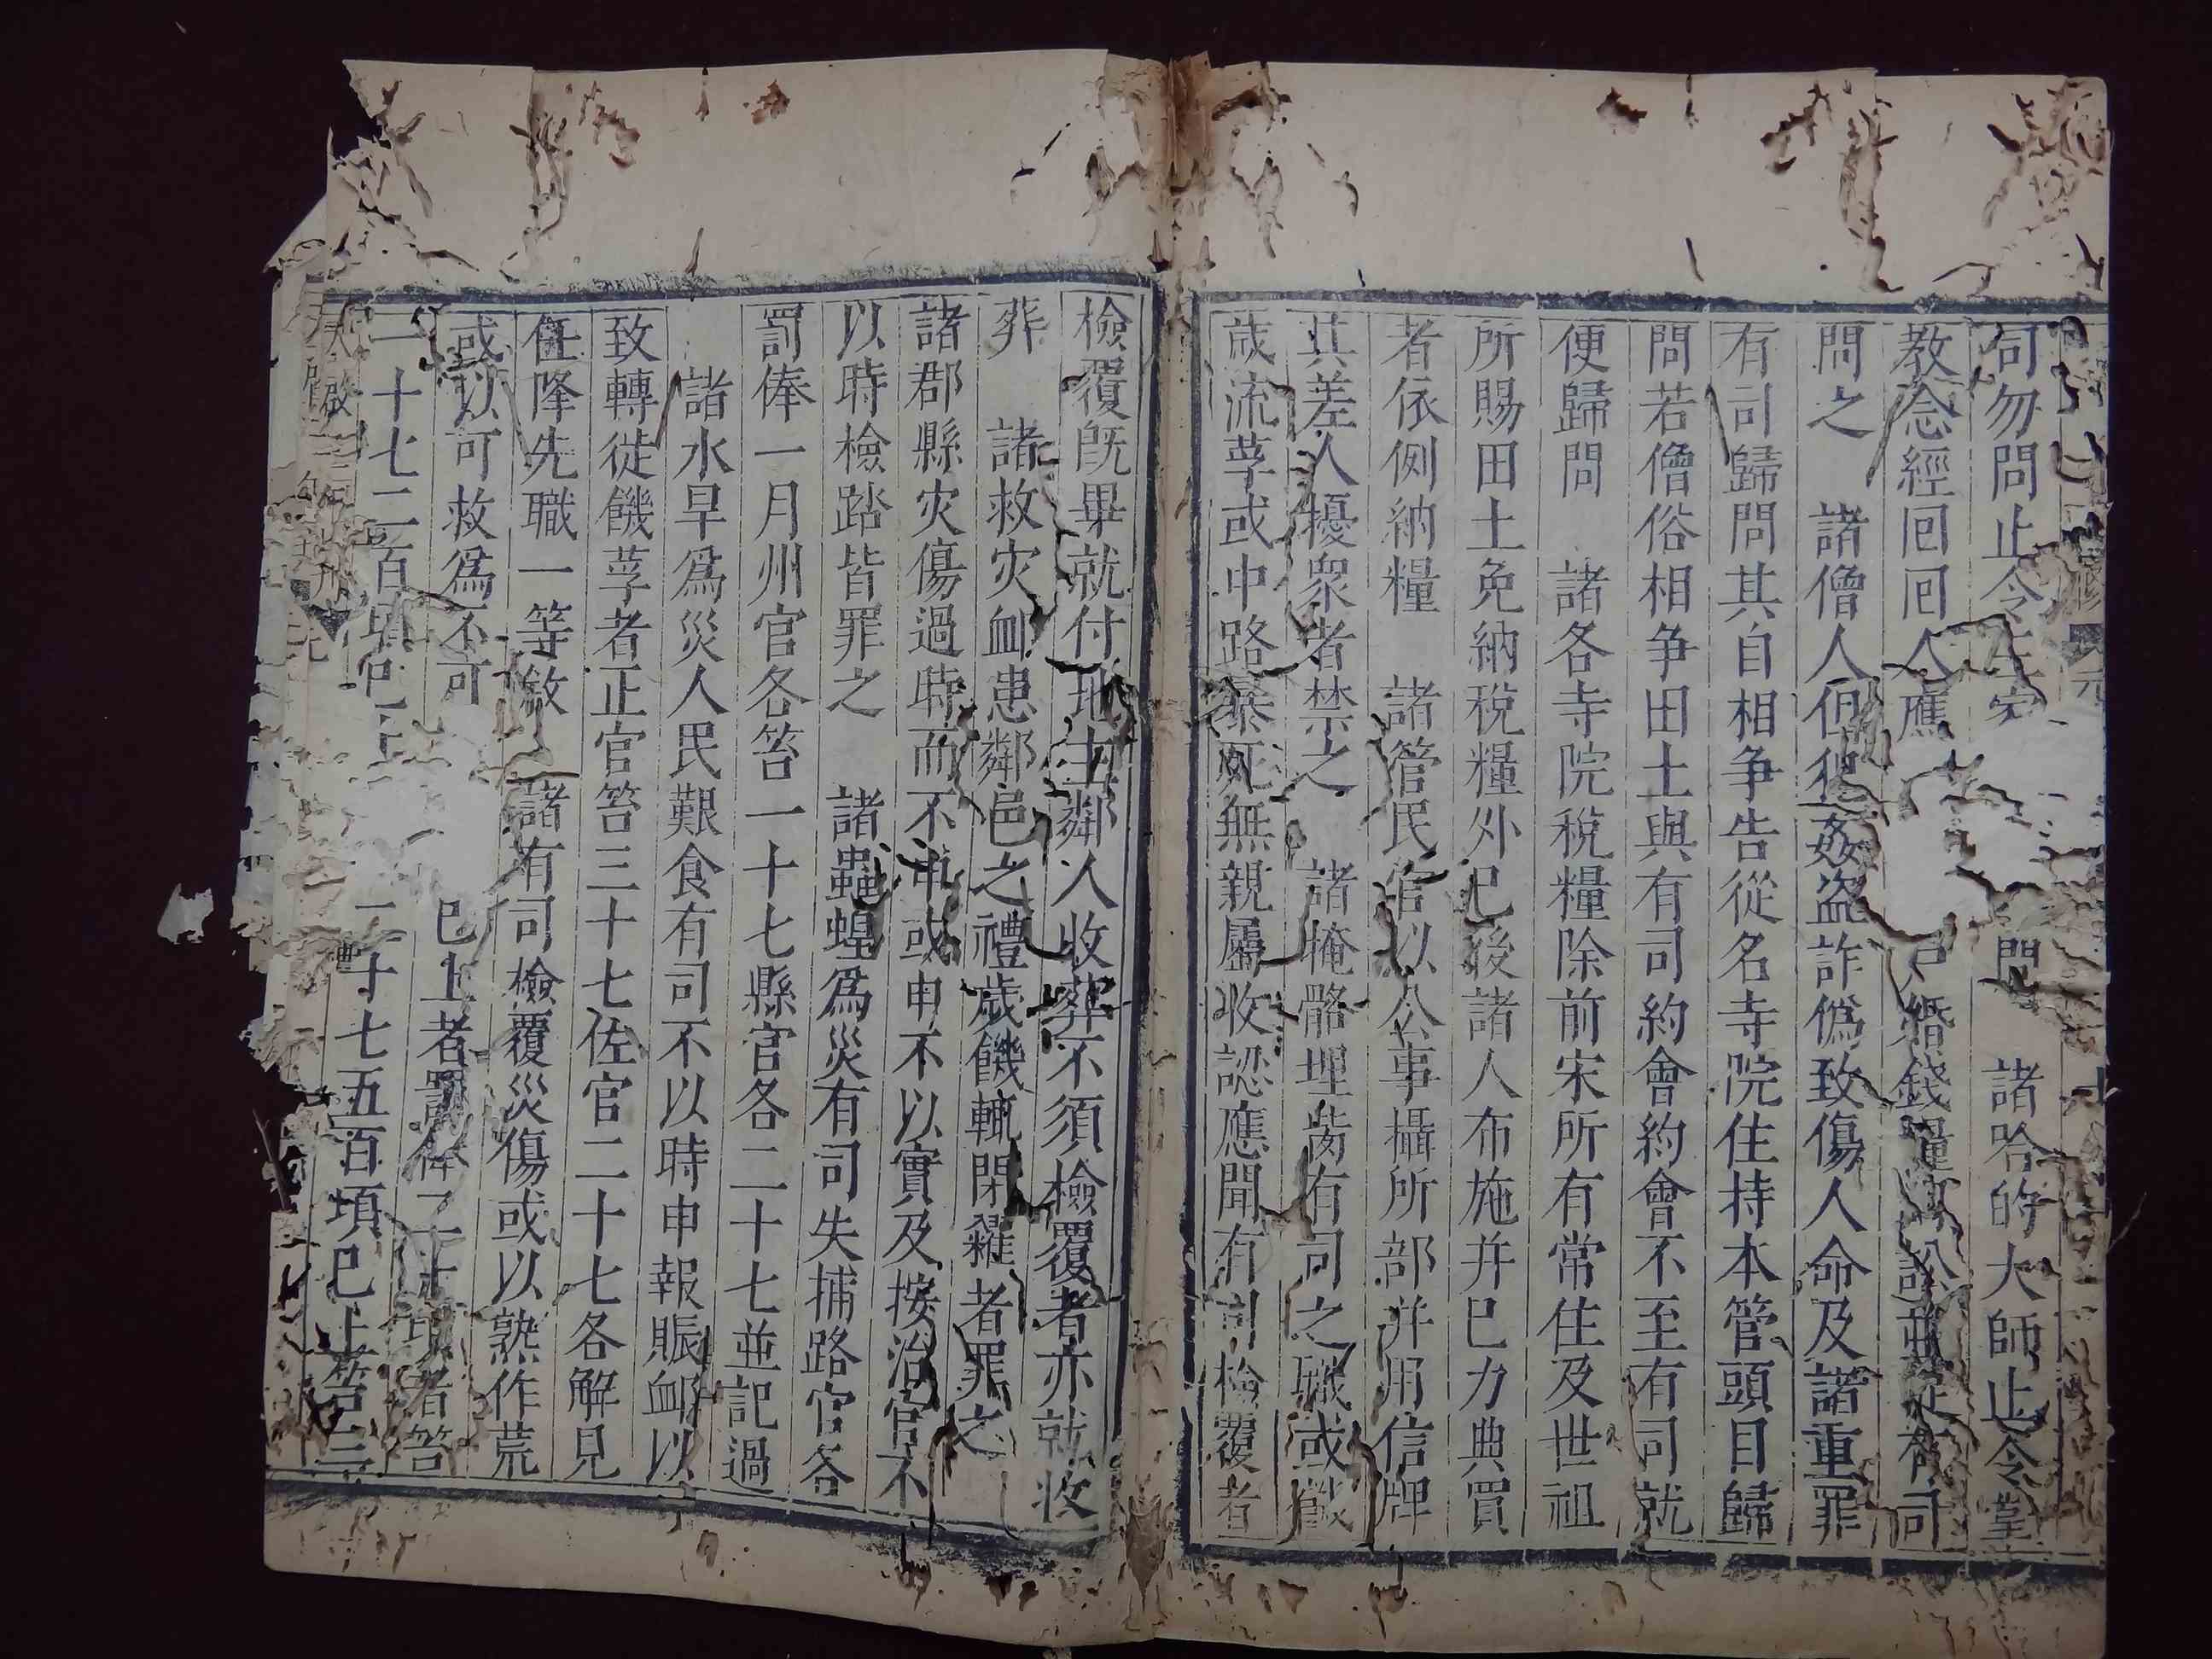 司勿問止令 諸哈的大師止令掌
教念經回回人應 婚錢糧 訟並從有司
問之　諸僧人但犯姦盗詐僞致傷人命及諸重罪
有司歸問其自相争告從名寺院住持本管頭目歸
問若僧俗相争田土與有司約會約會不至有司就
便歸問　諸各寺院稅糧除前宋所有常住及世祖
所賜田土免納稅糧外已後諸人布施并已力典買
者依例納糧　諸管民官以公事攝所部并用信牌
其差人擾衆者禁之　諸掩骼埋胔有司之職或饑
歲流莩或中路暴死無親屬收認應聞有司檢覆者
檢覆旣畢就付地主鄰人收葬不須檢覆者亦就收
葬　諸救灾衈患鄰邑之禮歲饑輒閉糴者罪之
諸郡縣灾傷過時而不申或申不以實及按治官不
以時檢踏皆罪之　諸蟲蝗爲災有司失捕路官各
罰俸一月州官各笞一十七縣官各二十七並記過
諸水旱爲災人民艱食有司不以時申報賑衈以
致轉徙饑莩者正官笞三十七佐官二十七各解見
任降先職一等敘　諸有司檢覆災傷或以熟作荒
或以可救爲不可 已上者罰俸 者笞
一十七二百頃已 二十七五百頃已上笞三
天啟三年刊